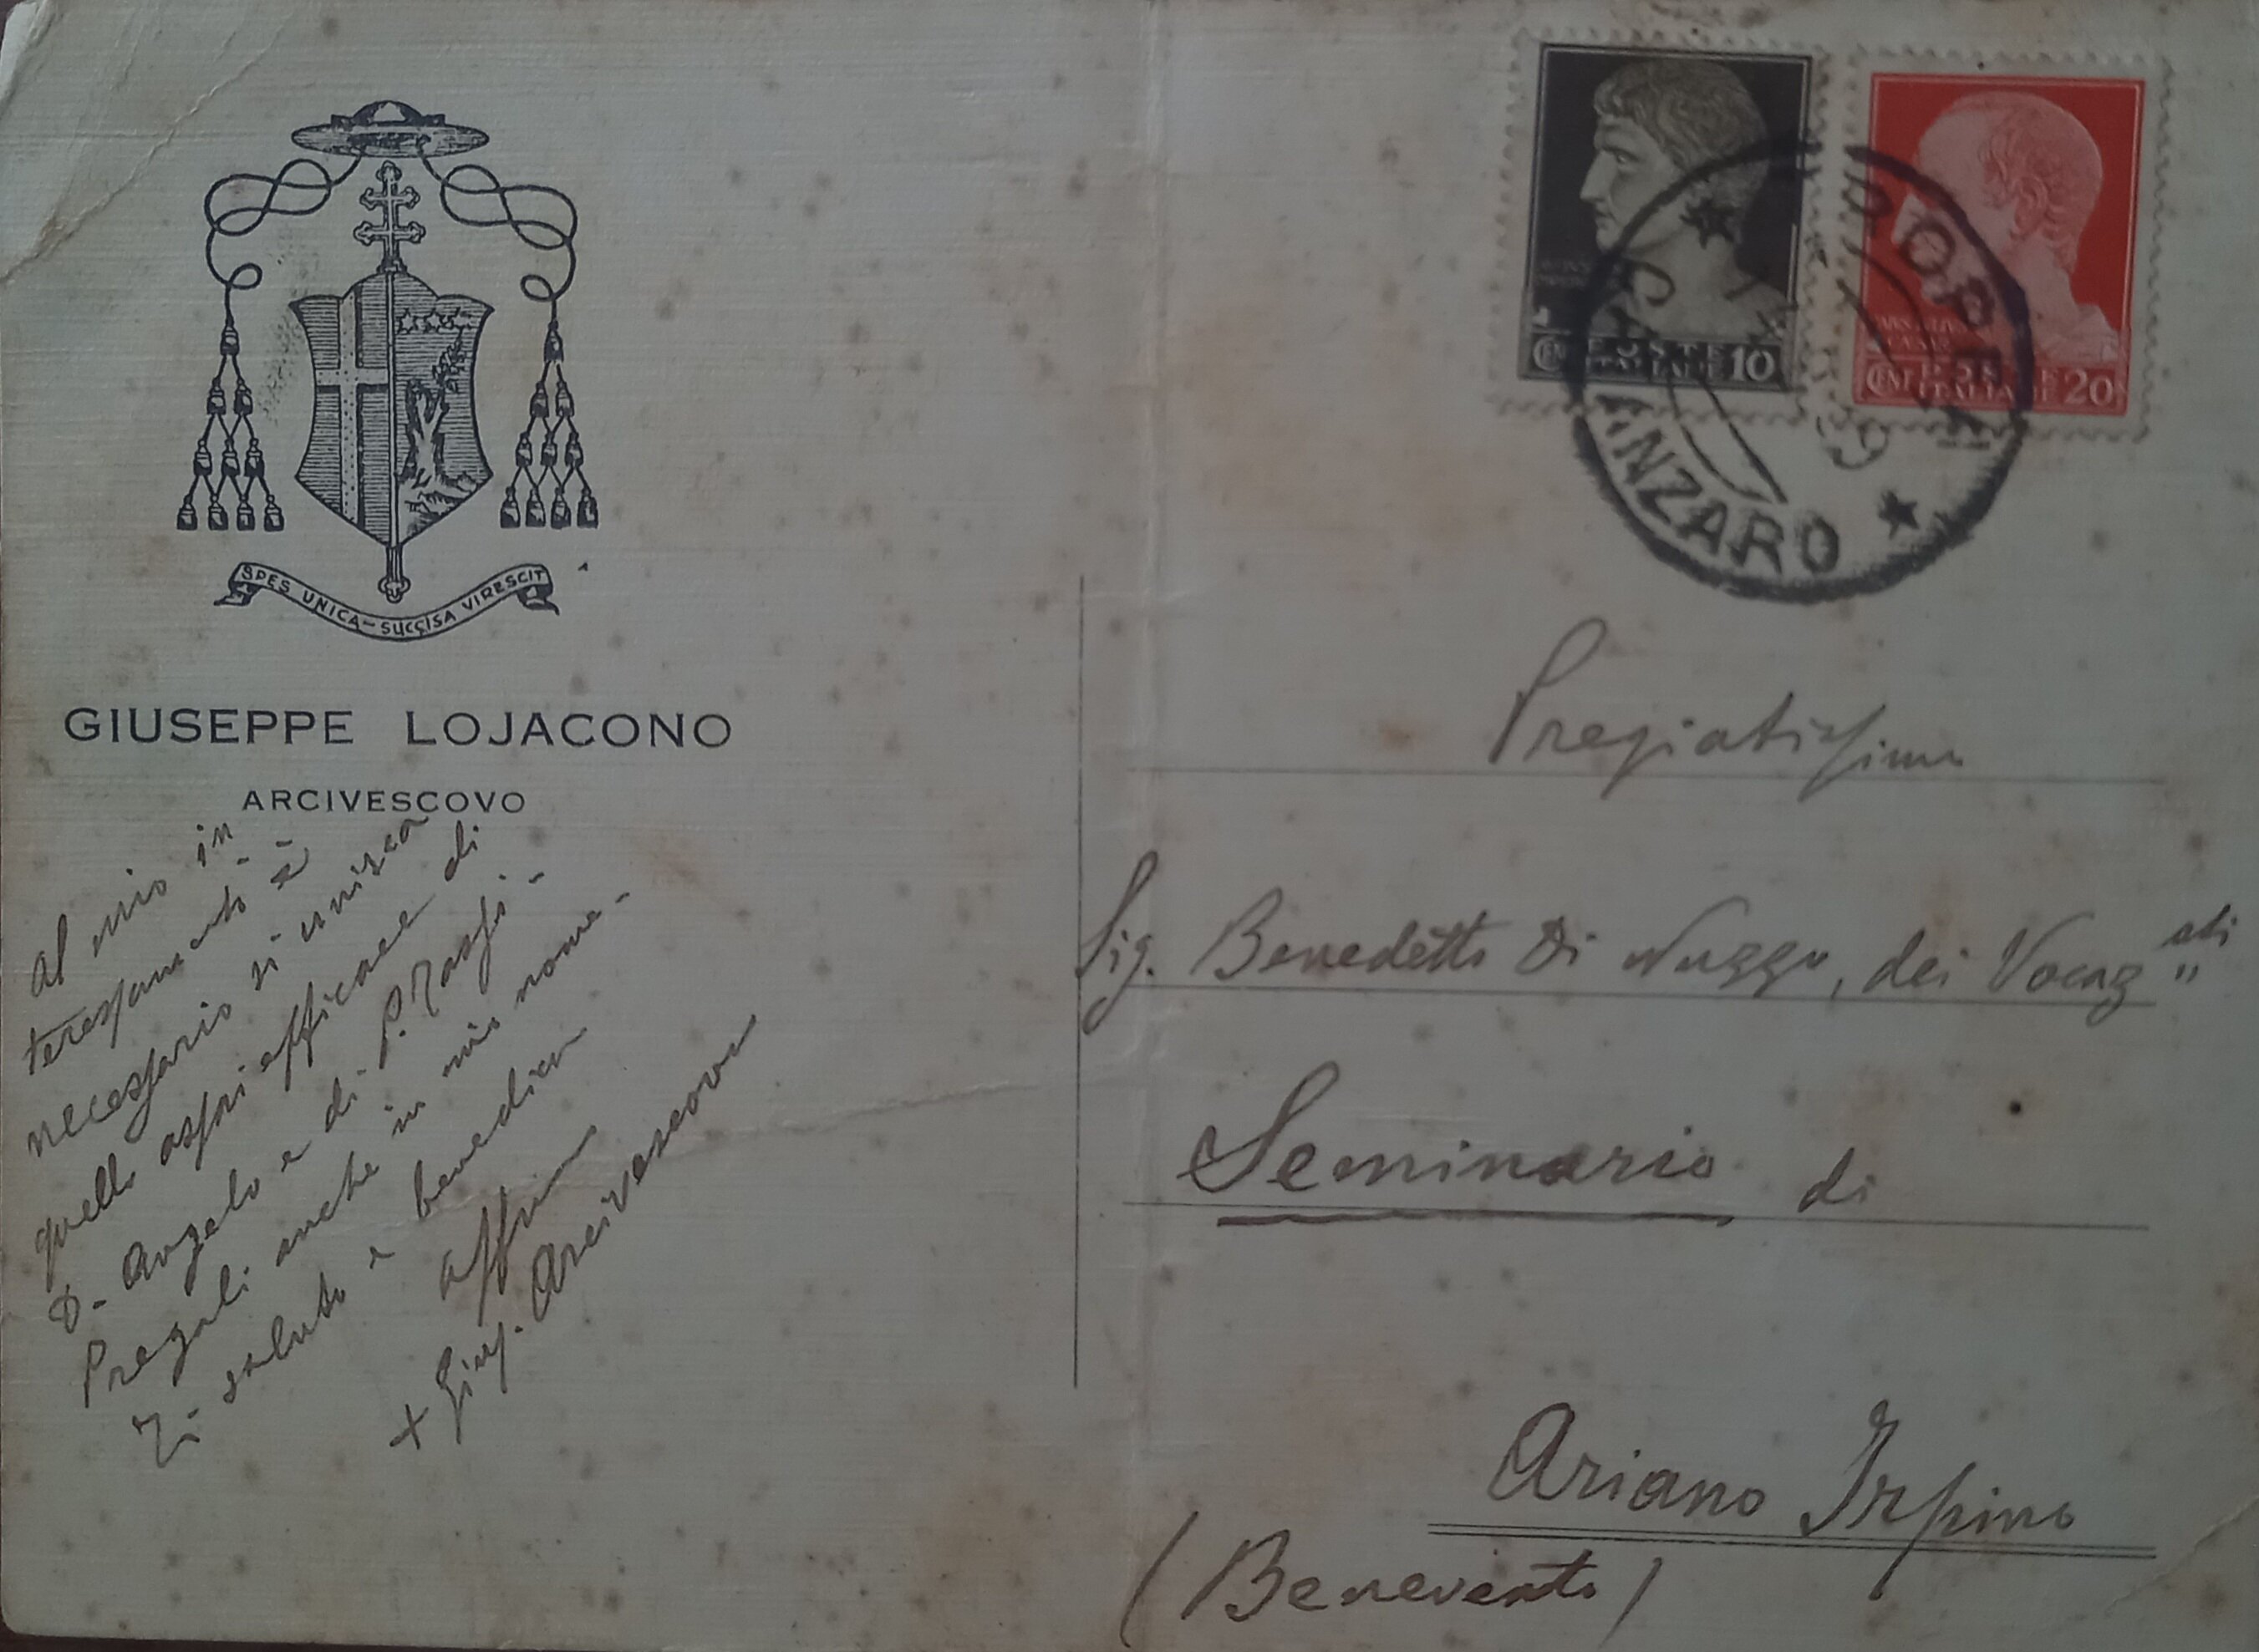 SPES UNICA - SUCCISA VIRESCIT
GIUSEPPE LOJACONO
ARCIVESCOVO
al mio in
teressamento è
necessario si unisca
quello assai efficace di
D. Angelo e di P.
Pregali anche in mio nome -
Ti saluto e benedico
affmo
+ Gius. Arcivescovo
POSTE
ITALIANE
CENT 10
POSTE
ITALIANE
CENT 20
ANZARO
Pregiatissimo
Sig. Benedetto Di Nuzzo, dei
Seminario di
Ariano Irpino
(Benevento)